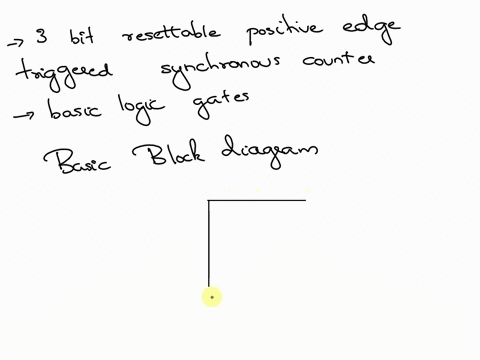 → 3 bit resettable positive edge
triggered synchronous counter
→ basic logic gates
Basic Block diagram